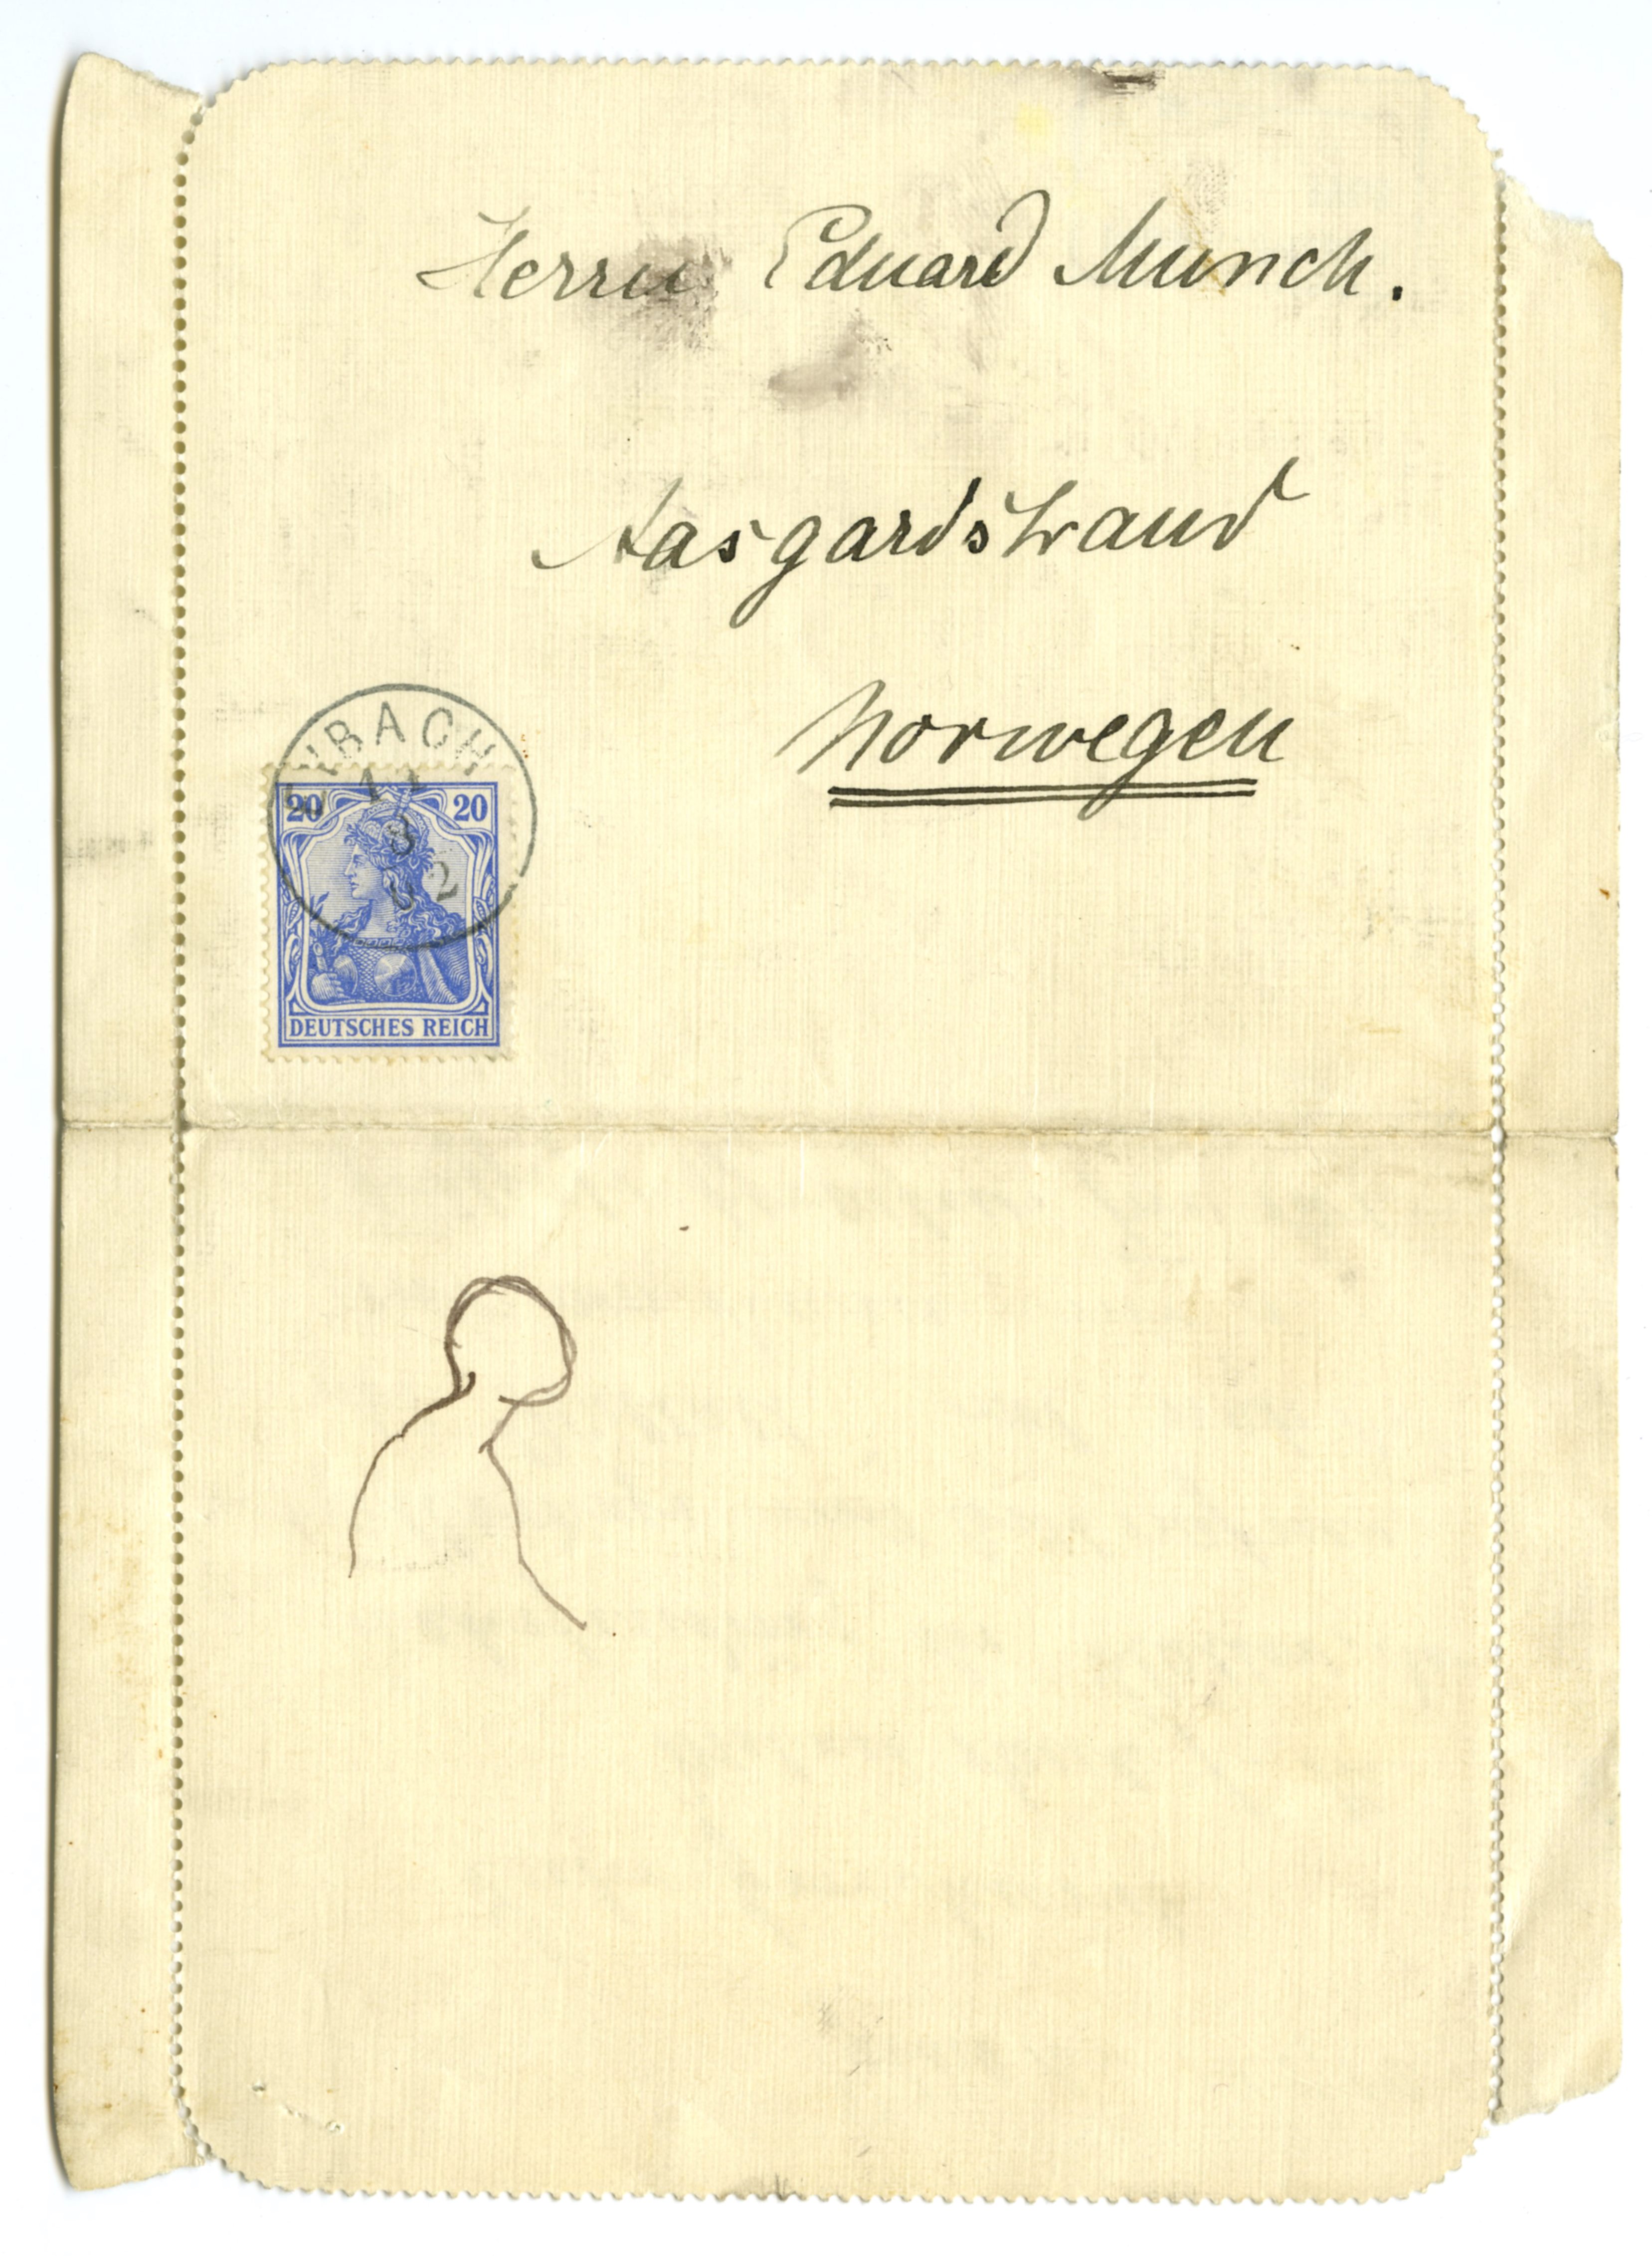 Herrn Eduard Munch.
Aasgardstrand
Norwegen
BACH
20 20
8
02
DEUTSCHES REICH